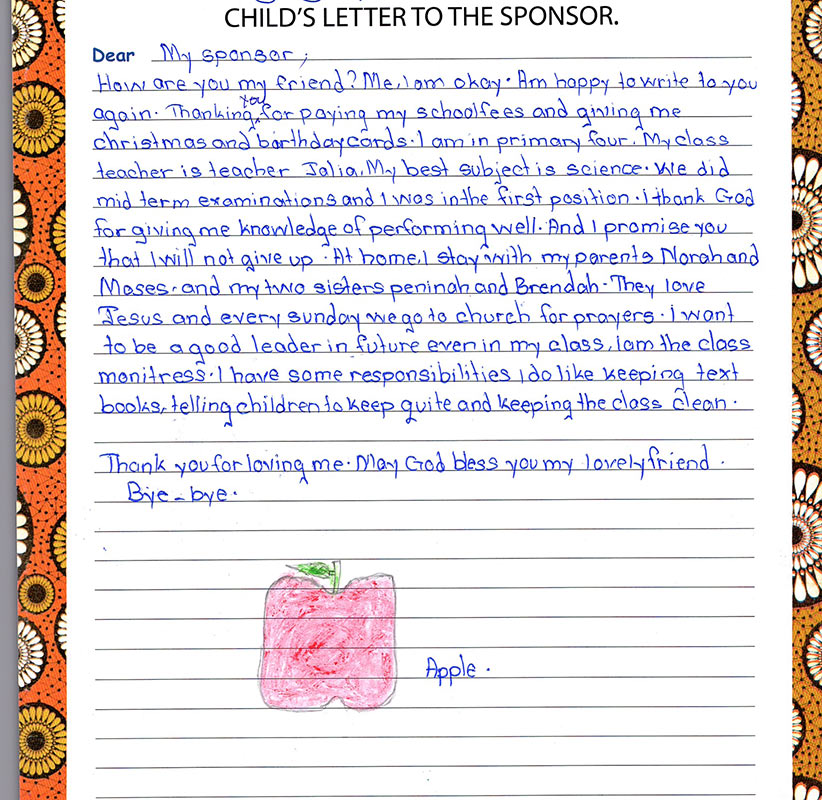 CHILD'S LETTER TO THE SPONSOR.
Dear My sponsor,
How are you my friend? Me, I am okay. Am happy to write to you
again. Thanking you for paying my schoolfees and giving me
christmas and barthdaycards. I am in primary four. My class
teacher is teacher Jalia. My best subject is science. We did
mid term examinations and I was in the first position. I thank God
for giving me knowledge of performing well. And I promise you
that I will not give up. At home, I stay with my parents Norah and
Moses. and my two sisters peninah and Brendah. They love
Jesus and every sunday we go to church for prayers. I want
to be a good leader in future even in my class, iam the class
monitress. I have some responsibilities I do like keeping text
books, telling children to keep quite and keeping the class clean.
Thank you for loving me. May God bless you my lovely friend.
Bye-bye.
Apple.